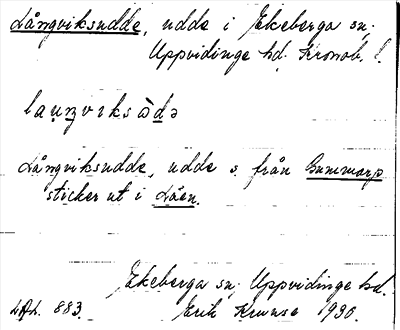 Långviksudde, udde i Ekeberga sn;
Uppvidinge hd. Kronob. l.
lau̯ŋviksòdə
Långviksudde, udde s. från Gummarp
sticker ut i Låen.
Ekeberga sn; Uppvidinge hd.
883. Erik Kruuse 1930.